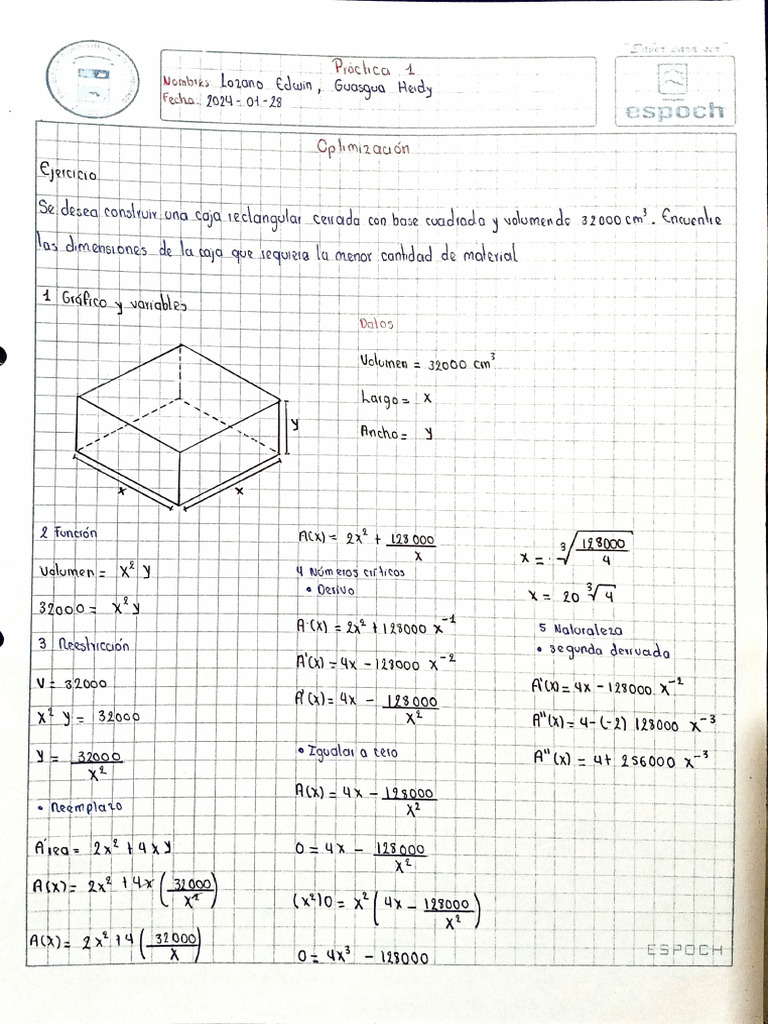 "Saber para ser"
Práctica 1
Nombres: Lozano Edwin, Guasgua Heidy
Fecha: 2024-01-28
espoch
Optimización
Ejercicio
Se desea construir una caja rectangular cerrada con base cuadrada y volumen de 32000 cm³. Encuentre
las dimensiones de la caja que requiera la menor cantidad de material
1 Gráfico y variables
Datos
Volumen = 32000 cm³
Largo = x
Ancho = y
y
x
x
2 Función
Volumen = x² y
32000 = x² y
3 Restricción
V = 32000
x² y = 32000
y = 32000/x²
• Reemplazo
Área = 2x² + 4xy
A(x) = 2x² + 4x (32000/x²)
A(x) = 2x² + 4 (32000/x)
A(x) = 2x² + 128000/x
4 Números críticos
• Derivo
A(x) = 2x² + 128000 x⁻¹
A'(x) = 4x - 128000 x⁻²
A'(x) = 4x - 128000/x²
• Igualar a cero
A(x) = 4x - 128000/x²
0 = 4x - 128000/x²
(x²)0 = x² (4x - 128000/x²)
0 = 4x³ - 128000
x = ∛(128000/4)
x = 20 ∛4
5 Naturaleza
• segunda derivada
A'(x) = 4x - 128000 x⁻²
A''(x) = 4-(-2) 128000 x⁻³
A''(x) = 4 + 256000 x⁻³
ESPOCH